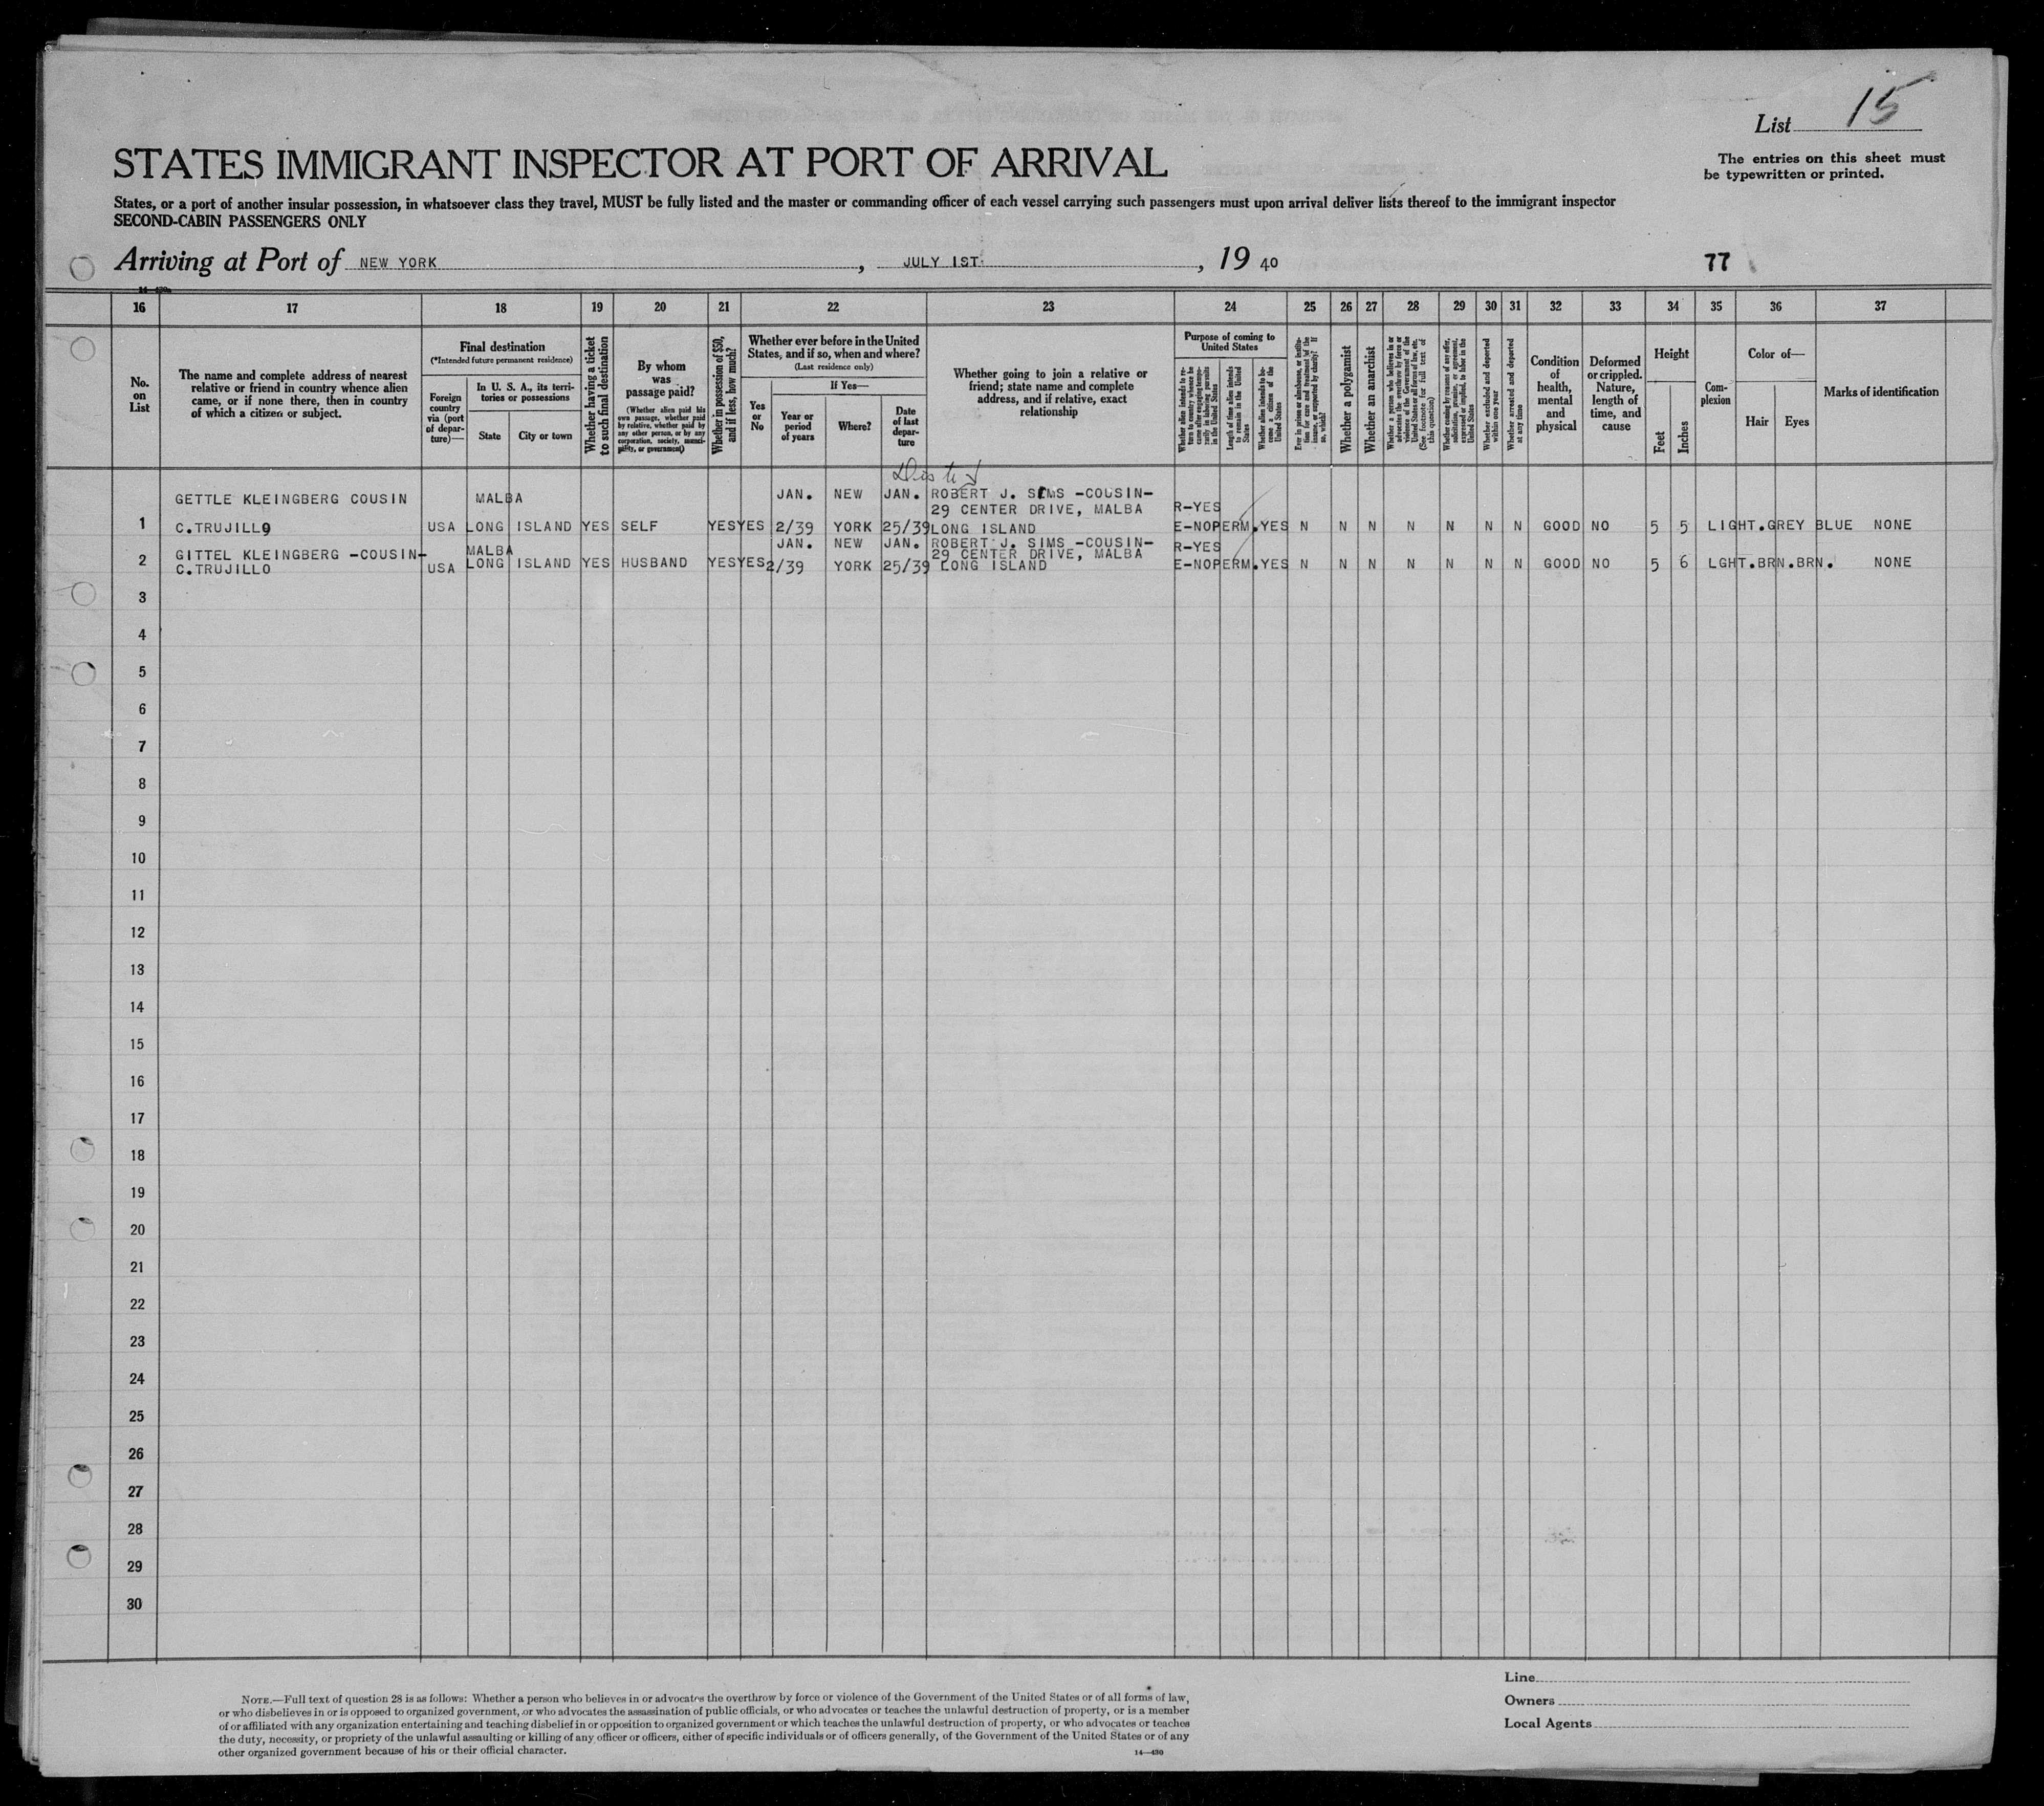 List 15
STATES IMMIGRANT INSPECTOR AT PORT OF ARRIVAL
The entries on this sheet must
be typewritten or printed.
States, or a port of another insular possession, in whatsoever class they travel, MUST be fully listed and the master or commanding officer of each vessel carrying such passengers must upon arrival deliver lists thereof to the immigrant inspector
SECOND-CABIN PASSENGERS ONLY
Arriving at Port of NEW YORK, JULY 1ST, 19 40
77
16 17 18 19 20 21 22 23 24 25 26 27 28 29 30 31 32 33 34 35 36 37
No.
on
List
The name and complete address of nearest
relative or friend in country whence alien
came, or if none there, then in country
of which a citizen or subject.
Final destination
(*Intended future permanent residence)
Foreign
country
via (port
of depar-
ture)—
In U. S. A., its terri-
tories or possessions
State
City or town
Whether having a ticket
to such final destination
By whom
was
passage paid?
(Whether alien paid his
own passage, whether paid
by relative, whether paid by
any other person, or by any
corporation, society, munici-
pality, or government)
Whether in possession of $50,
and if less, how much?
Whether ever before in the United
States, and if so, when and where?
(Last residence only)
Yes
or
No
If Yes—
Year or
period
of years
Where?
Date
of last
depar-
ture
Whether going to join a relative or
friend; state name and complete
address, and if relative, exact
relationship
Purpose of coming to
United States
Whether alien intends to re-
turn to country whence he
came after engaging tempo-
rarily in laboring pursuits
in the United States
Length of time alien intends
to remain in the United
States
Whether alien intends to be-
come a citizen of the
United States
Ever in prison or almshouse, or institu-
tion for care and treatment of the
insane, or supported by charity? If
so, which?
Whether a polygamist
Whether an anarchist
Whether a person who believes in or
advocates the overthrow by force or
violence of the Government of the
United States or all forms of law, etc.
(See footnote for full text of
this question)
Whether coming by reasons of any offer,
solicitation, promise, or agreement,
expressed or implied, to labor in the
United States
Whether excluded and deported
within one year
Whether arrested and deported
at any time
Condition
of
health,
mental
and
physical
Deformed
or crippled.
Nature,
length of
time, and
cause
Height
Feet
Inches
Com-
plexion
Color of—
Hair
Eyes
Marks of identification
GETTLE KLEINGBERG COUSIN MALBA JAN. NEW JAN. ROBERT J. SIMS -COUSIN-
29 CENTER DRIVE, MALBA R-YES
1 C.TRUJILLO USA LONG ISLAND YES SELF YES YES 2/39 YORK 25/39 LONG ISLAND E-NO PERM. YES N N N N N N N GOOD NO 5 5 LIGHT. GREY BLUE NONE
GITTEL KLEINGBERG -COUSIN- MALBA JAN. NEW JAN. ROBERT J. SIMS -COUSIN-
29 CENTER DRIVE, MALBA R-YES
2 C.TRUJILLO USA LONG ISLAND YES HUSBAND YES YES 2/39 YORK 25/39 LONG ISLAND E-NO PERM. YES N N N N N N N GOOD NO 5 6 LGHT.BRN.BRN. NONE
3
4
5
6
7
8
9
10
11
12
13
14
15
16
17
18
19
20
21
22
23
24
25
26
27
28
29
30
NOTE.—Full text of question 28 is as follows: Whether a person who believes in or advocates the overthrow by force or violence of the Government of the United States or of all forms of law,
or who disbelieves in or is opposed to organized government, or who advocates the assassination of public officials, or who advocates or teaches the unlawful destruction of property, or is a member
of or affiliated with any organization entertaining and teaching disbelief in or opposition to organized government or which teaches the unlawful destruction of property, or who advocates or teaches
the duty, necessity, or propriety of the unlawful assaulting or killing of any officer or officers, either of specific individuals or of officers generally, of the Government of the United States or of any
other organized government because of his or their official character.
14—430
Line
Owners
Local Agents